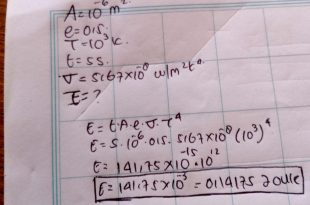 A=10⁻⁶ m².
e=0,5.
T=10³ K.
t=5s.
σ=5,67×10⁻⁸ w/m²t⁴
E=?
E=t.A.e.σ.T⁴
E=5.10⁻⁶.0,5.5,67×10⁻⁸(10³)⁴
E=141,75×10⁻¹⁵.10¹²
E=141,75×10⁻³=0,14175 Joule